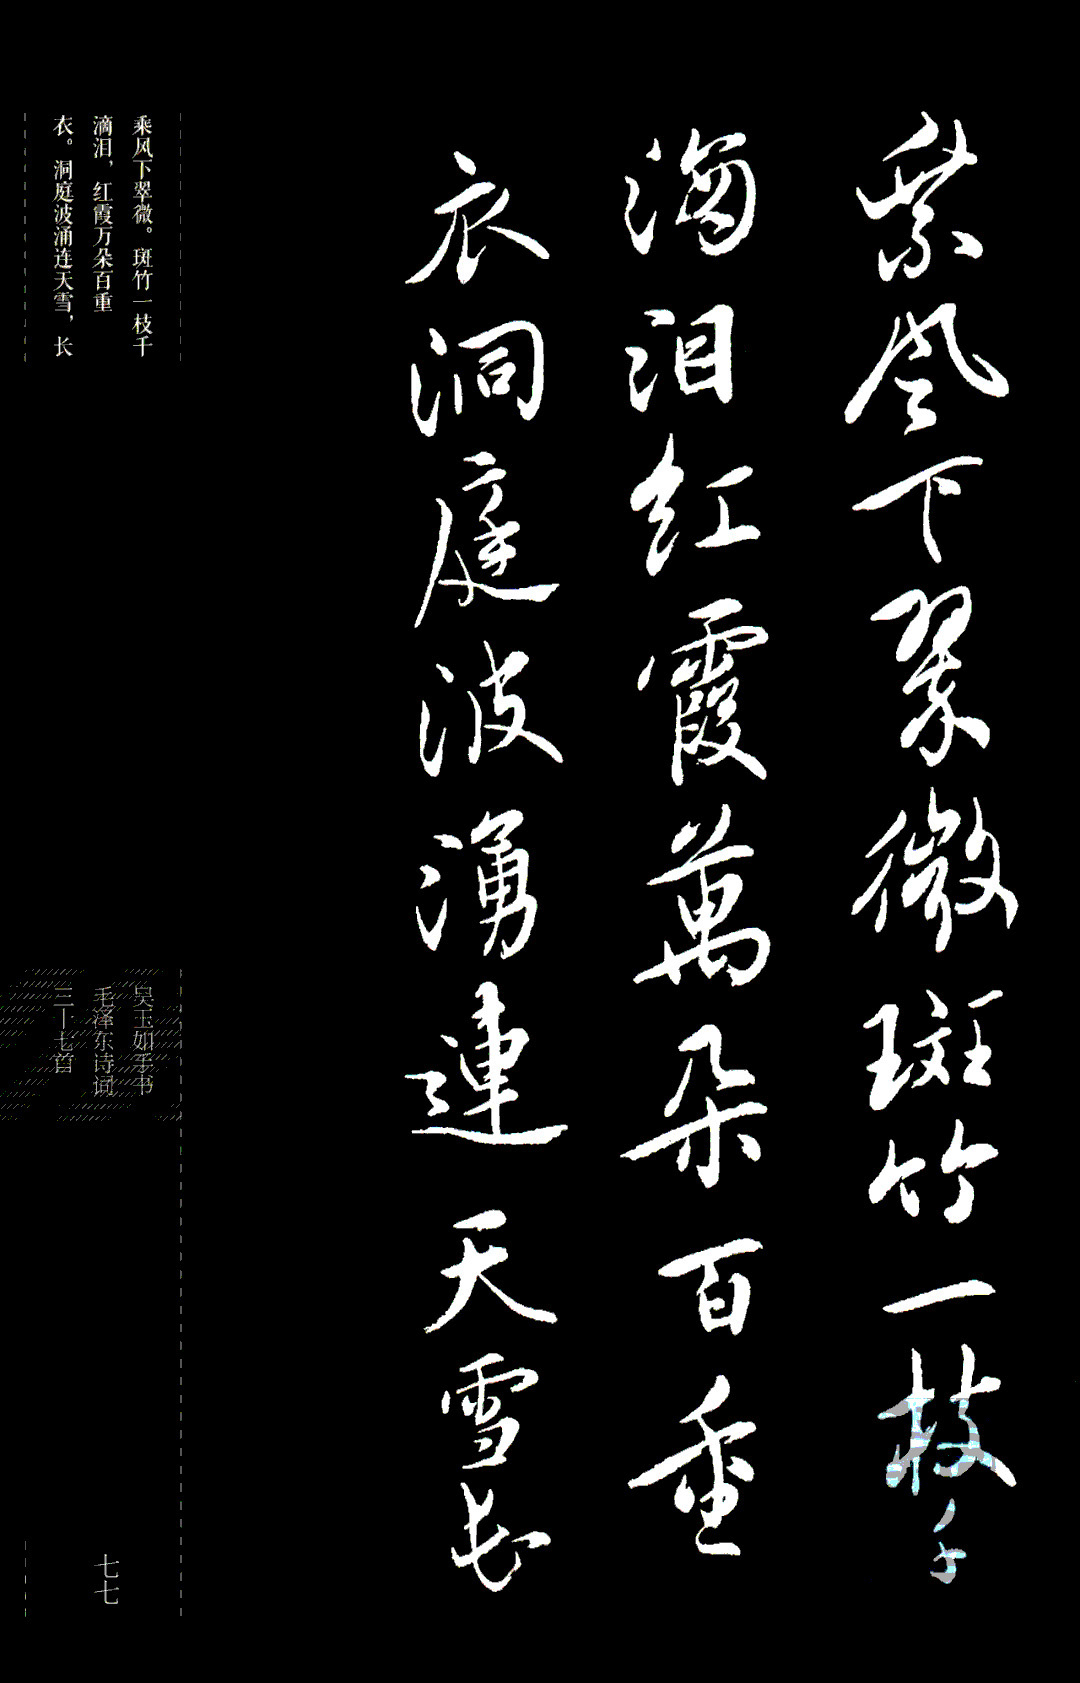 乘風下翠微斑竹一枝千
滴泪紅霞萬朵百重
衣洞庭波湧連天雪長
乘风下翠微。斑竹一枝千
滴泪，红霞万朵百重
衣。洞庭波涌连天雪，长
吴玉如手书
毛泽东诗词
三十七首
七七